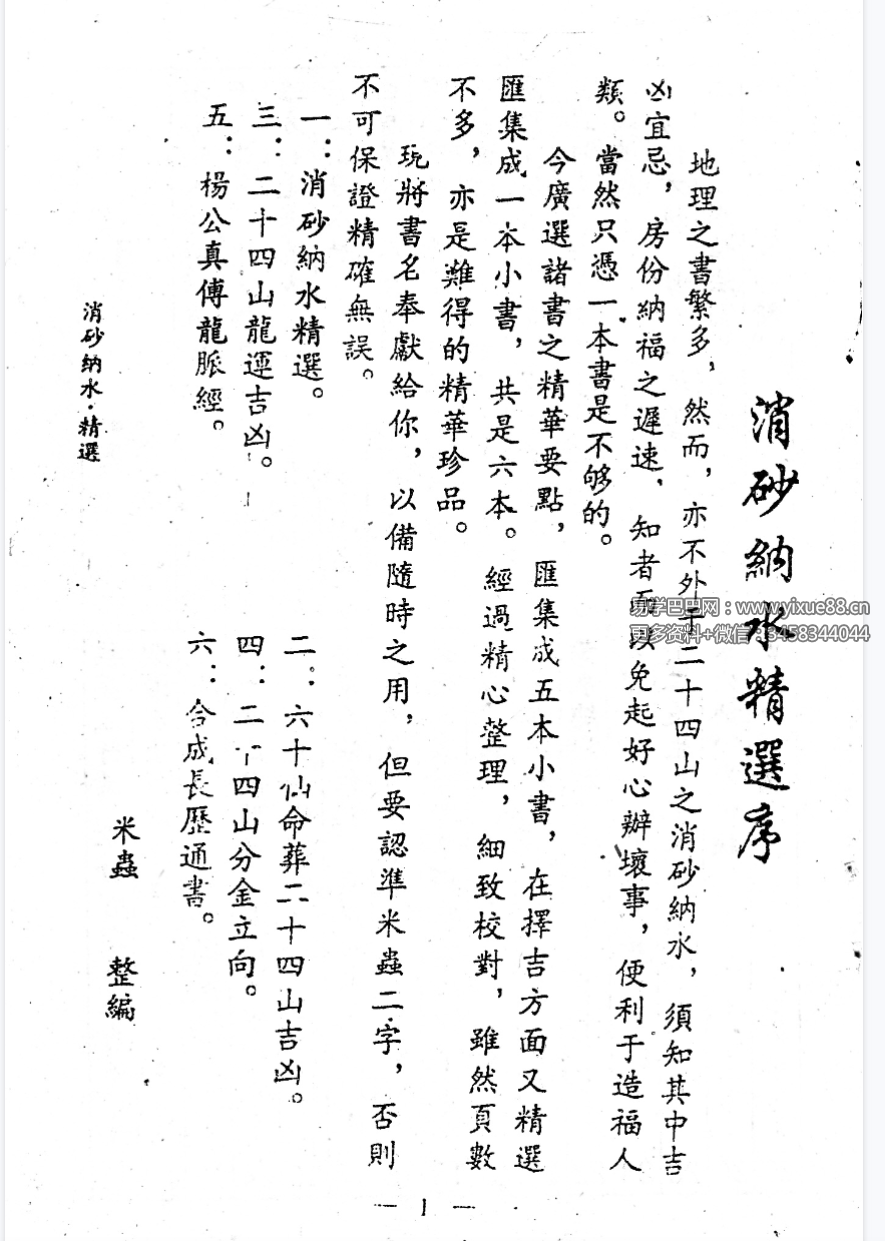 消砂納水精選序
地理之書繁多，然而，亦不外于二十四山之消砂納水，須知其中吉
凶宜忌，房份納福之遲速，知者可以免起好心辦壞事，便利于造福人
類。當然只憑一本書是不够的。
今廣選諸書之精華要點，匯集成五本小書，在擇吉方面又精選
匯集成一本小書，共是六本。經過精心整理，細致校對，雖然頁數
不多，亦是難得的精華珍品。
玩將書名奉獻給你，以備隨時之用，但要認準米蟲二字，否則
不可保證精確無誤。
一：消砂納水精選。
二：六十仙命葬二十四山吉凶。
三：二十四山龍運吉凶。
四：二十四山分金立向。
五：楊公真傳龍脈經。
六：合成長歷通書。
米蟲 整編
消砂納水·精選
— 1 —
易学巴巴网：www.yixue88.cn
更多资料+微信:13458344044